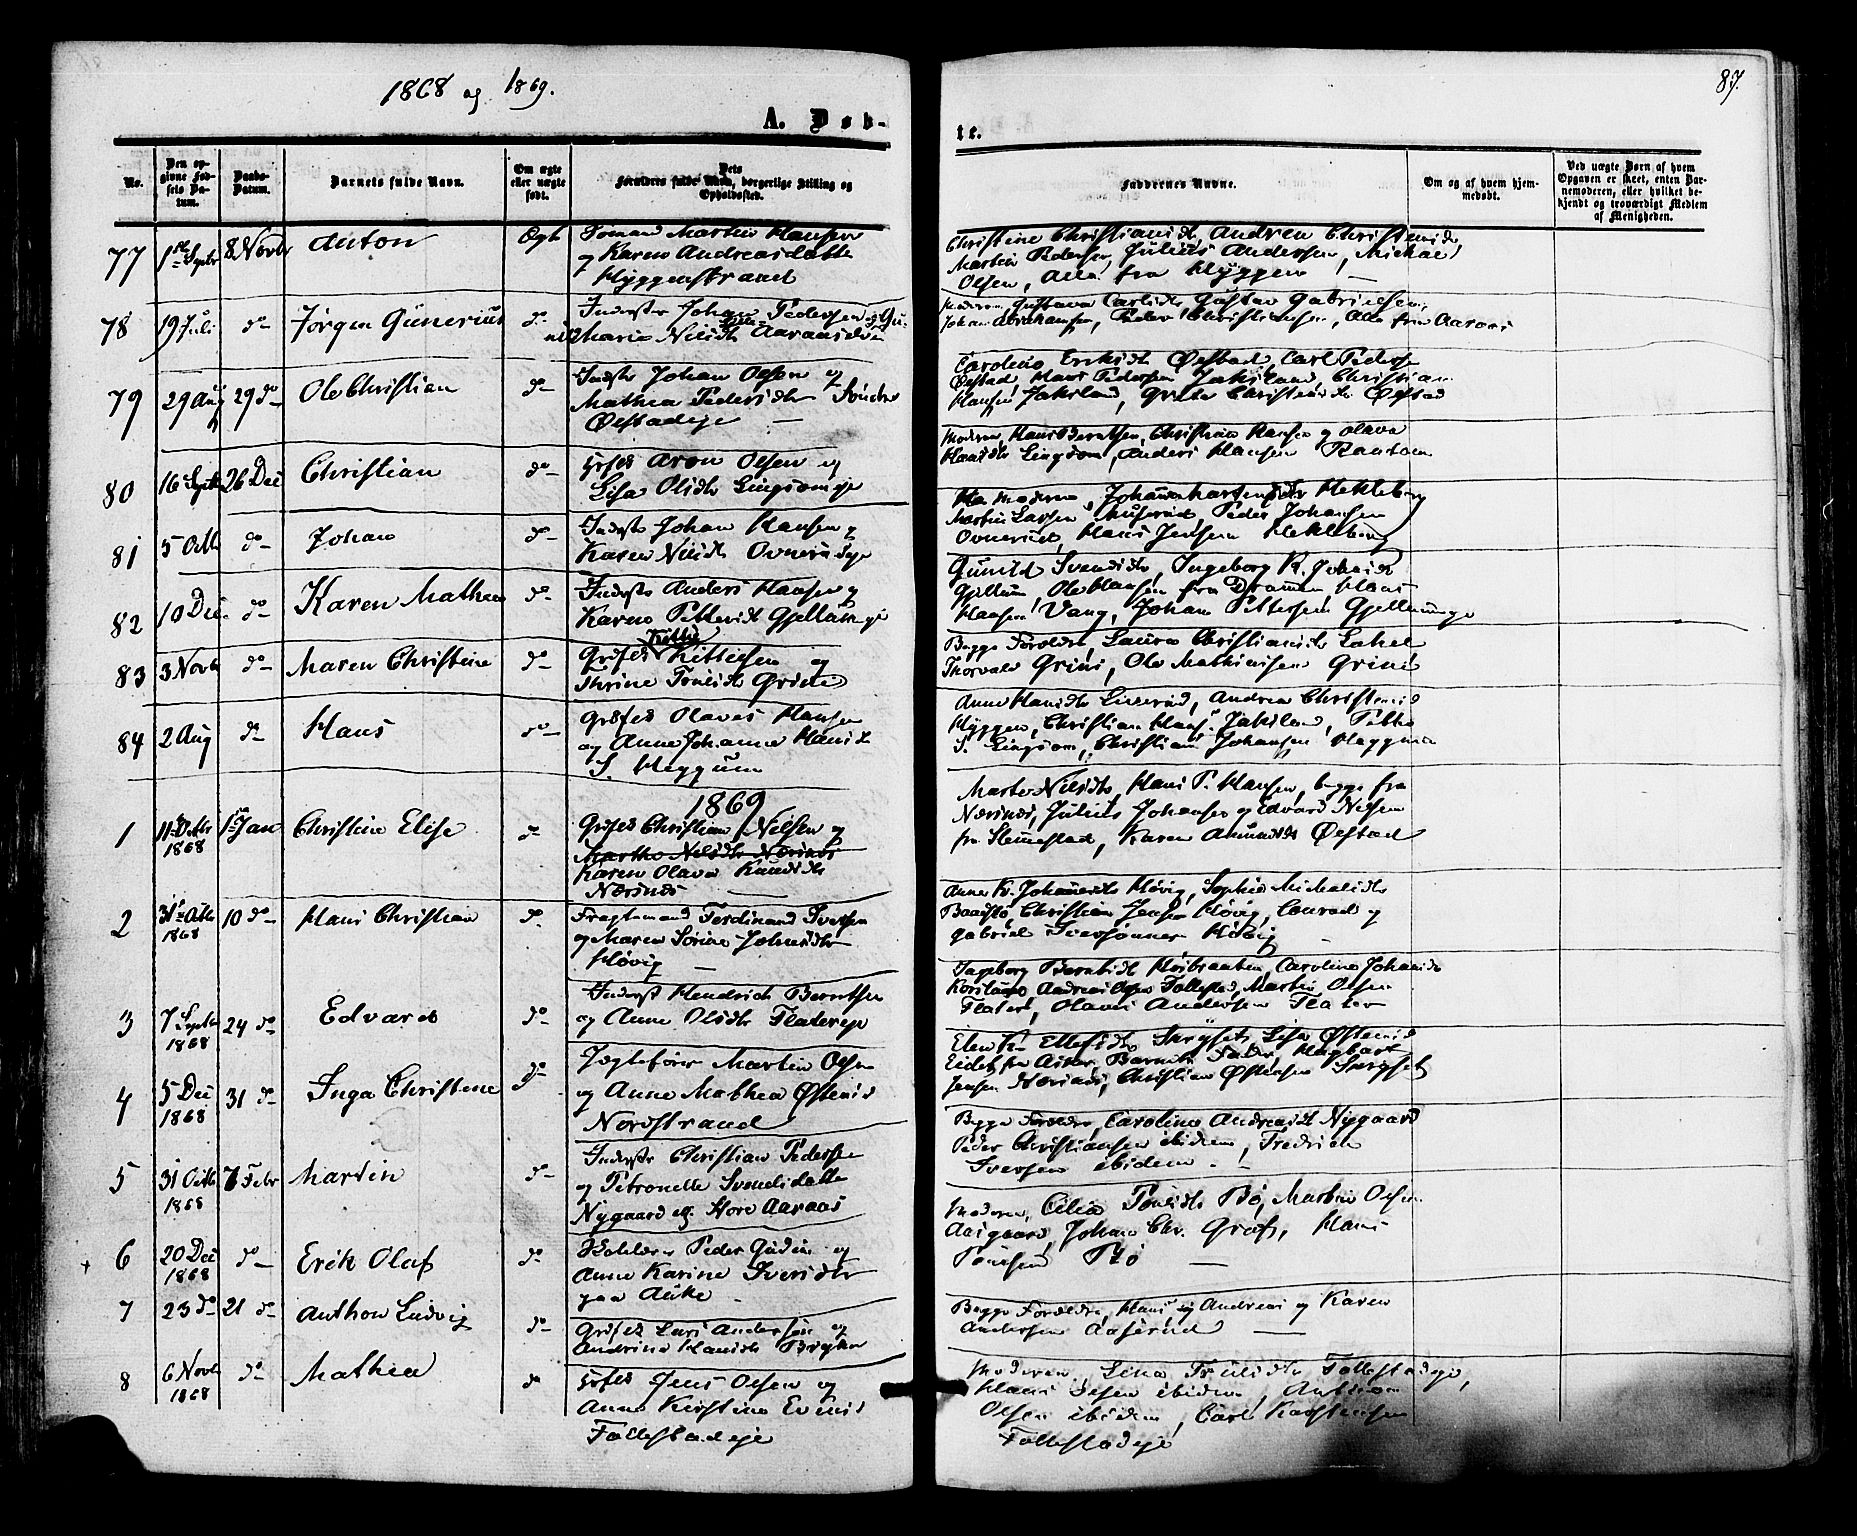 1868 og 1869.
87.
A. Døb-
te.
No.
Den op-
givne Fød-
sels Da-
tum.
Daabs-
Datum.
Barnets fulde Navn.
Om ægte
eller uægte
født.
Dets
Forældres fulde Navn, borgerlige Stilling og
Opholdssted.
Faddernes Navne.
Om og af hvem hjem-
medøbt.
Ved uægte Børn af hvem
Opgaven er skeet, enten Bar-
nemoderen, eller hvilket be-
kjendt og troværdigt Medlem
af Menigheden.
77
1ste Septbr
8 Novbr
Anton
Ægte
Sømand Martin Hansen
og Karen Andreasdatte
Hyggenstrand
Christine Christiansdt Andrea Christensdt
Martin Pedersen, Julius Andersen, Michael
Olsen, Alle fra Hyggen
78
19 Juli
do
Jørgen Gunerius
do
Inderst Johan Pedersen og
Maria Nilsdt Aaraasdeie
Moderen, Gustava Carlsdt Gustav Gabrielsen
Johan Abrahamsen, Peder Christiansen, Alle fra Aaroes
79
29 Aug
29 do
Ole Christian
do
Inderst Johan Olsen og
Mathea Pedersdt Søndre
Øfstadeje
Caroline Eriksdt Øfstad, Carl Peders
Øfstad, Hans Pedersen Jaksland, Christian
Hansen Jaksland, Grete Christensdt Øfstad
80
16 Septbr
26 Dec
Christian
do
Aron Olsen og
Lisa Olsdt Lingsomeje
Moderen, Hans Berntsen, Christian Hansen og Olava
Hansdt Lingsom, Anders Hansen
81
5 Octb
do
Johan
do
Inderst Johan Hansen og
Karen Nilsdt Ovnerudeje
Moderen, Johanne Martensdt Hekleberg
Martin Larsen Muserud Peder Johansen
Ovnerud, Hans Jensen Hekleberg
82
10 Dec
do
Karen Mathea
do
Inderst Anders Hansen og
Karen Pettersdt Gjellumeje
Gunild Svendsdt, Ingeborg K. Johnsdt
Gjellum, Ole Hansen fra Drammen Hans
Hansen Vang, Johan Pettersen Gjellumeje
83
3 Novb
do
Maren Christine
do
Kittil
Grdfed Kittilsen og
Thrine Paulsdt Grini
Begge Forældre, Laura Christiansdt Lahel
Thorvald Grini, Ole Mathiesen Grini
84
2 Aug
do
Hans
do
Grdfed Olaves Hansen
og Anne Johanne Hansdt
S. Heggum
Anne Hansdt, Andrea Christensdt
Hyggen, Christian Hans. Jaksland,
S. Lingsom, Christian Johansen Heggum
1869
1
11 Octbr
1868
1ste Jan
Christine Elise
do
Grdfed Christian Nilsen og
Marthe Nilsdt Nærsnes
Karen Olava Knudsdt
Nærsnes
Marte Nilsdt, Hans P. Hansen, begge fra
Nærsnes, Julius Johansen og Edvard Nilsen
fra Slemmestad, Karen Amundsdt Øfstad
2
31te Octb
1868
10 do
Hans Christian
do
Fragtemand Ferdinand Iversen
og Maren Sørine Johnsdtr
Høvig
Anne K. Johannesdt Høvig, Sophie Michalsdt
Baadstø, Christian Jensen Høvig, Conrad og
Gabriel Iversønner Høvig
3
7 Septbr
1868
24 do
Edvard
do
Inderst Hendrich Berntsen
og Anne Olsdtr Flatereje
Ingeborg Berntsdt Høibraaten, Caroline Johansdt
Andreas Olsen Follestad, Martin Olsen
Flater, Olaus Andersen Flater
4
5 Dec
1868
31 do
Inga Christine
do
Jægtefører Martin Olsen
og Anne Mathea Østensdt
Nordstrand
Elen K. Ellefsdtr Skryset, Lise Østensdt
Eidet fra Asker, Peder, Hagbart
Jensen Nærsnes, Christian Østensen Skryset
5
31 Octb
1868
7 Febr
Martin
do
Inderst Christian Pedersen
og Petronelle Svendsdatte
Nygaard og Store Aaraas
Begge Forældre, Caroline Andreasdt Nygaard
Peder Christiansen ibidem, Fredrik
Iversen ibidem
6
20 Dec
1868
do
Erik Olaf
do
Peder Gudin og
Anne Karine Iversdtr
paa Auke
Moderen, Celia Paulsdt Bø, Martin Olsen
Aaigaard, Johan Chr. Graff, Hans
Paulsen Bø
7
23 do
21 do
Anthon Ludvig
do
Grdfed Lars Andersen og
Andrine Hansdt
Begge Forældre, Hans og Andreas og Karen
Andersen Aaserud
8
6 Novb
1868
do
Mathea
do
Jens Olsen og
Anne Kirstine Evensdt
Follestadeje
Moderen, Lina Follestadeje,
Hans Olsen ibidem,
Olsen ibidem, Carl Karstensen
Follestadeje